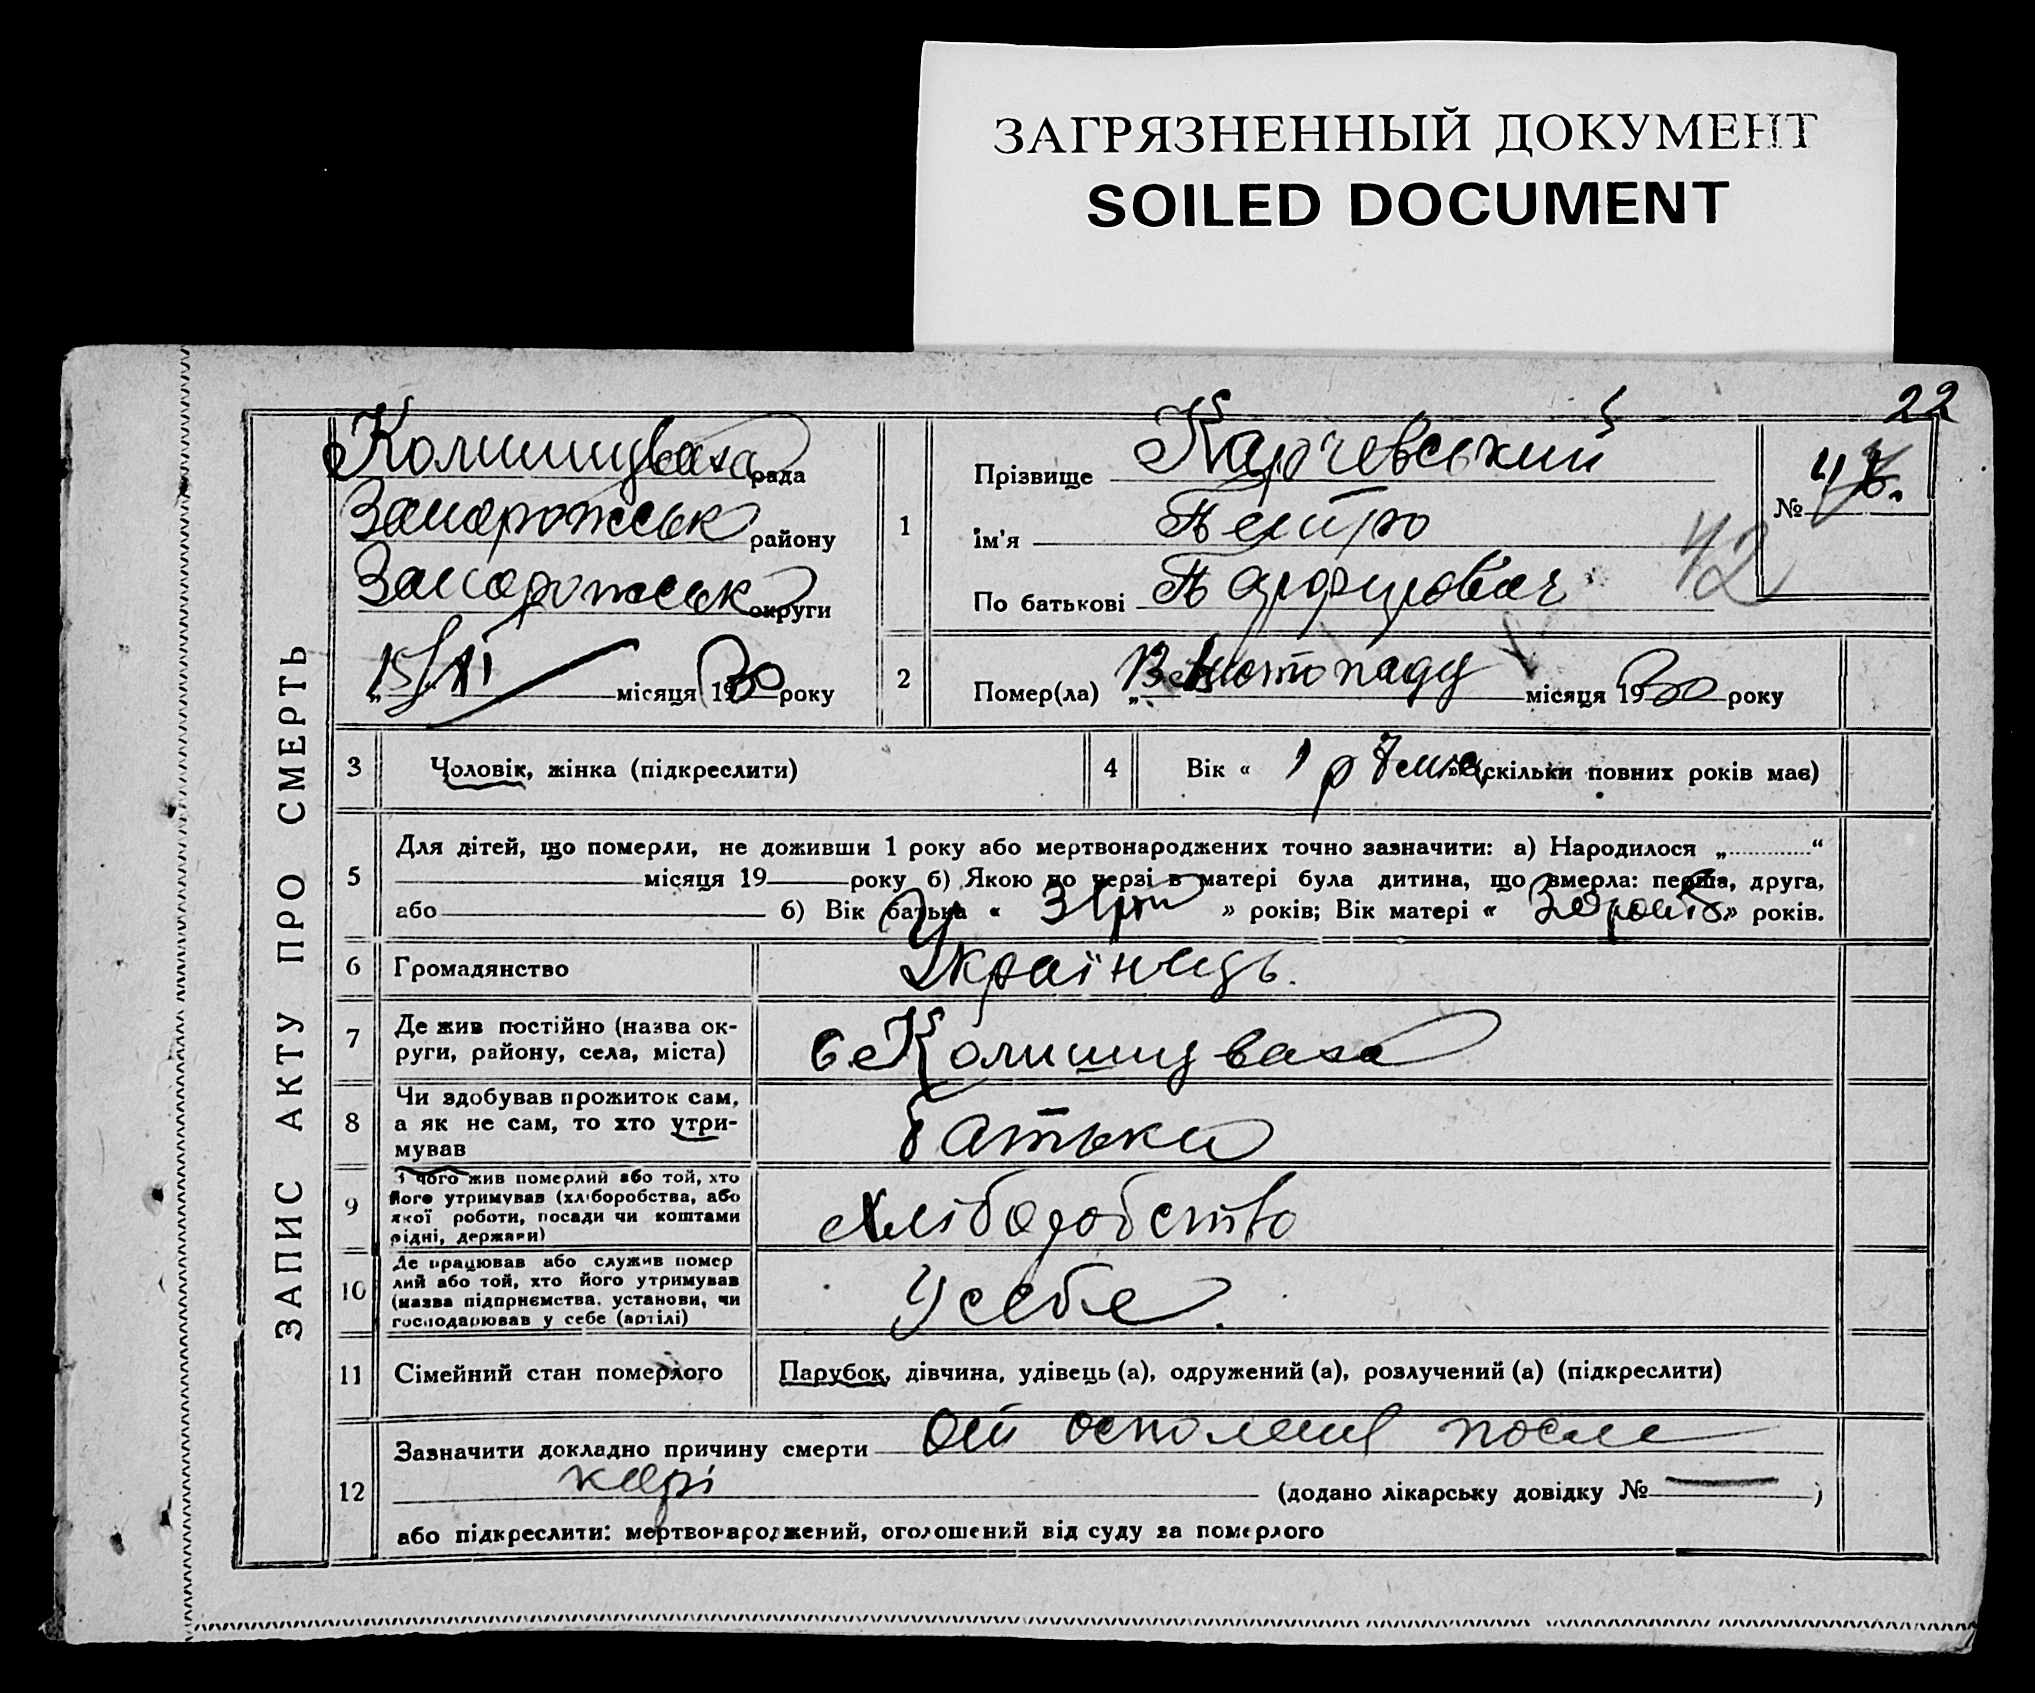 ЗАГРЯЗНЕННЫЙ ДОКУМЕНТ
SOILED DOCUMENT
22
ЗАПИС АКТУ ПРО СМЕРТЬ
Комишуваха рада
Запорожськ району
Запорожськ округи
„15/XI місяця 1930 року
1
Прізвище Карчевський
ім'я Петро
По батькові
№
42
2
Помер(ла) „13 Листопаду місяця 1930 року
3
Чоловік, жінка (підкреслити)
4
Вік « 1 р 7 міс (скільки повних років має)
5
Для дітей, що померли, не доживши 1 року або мертвонароджених точно зазначити: а) Народилося „ “
місяця 19 року б) Якою по черзі в матері була дитина, що вмерла: перша, друга,
або б) Вік батька « » років; Вік матері « » років.
6
Громадянство
Українець.
7
Де жив постійно (назва ок-
руги, району, села, міста)
с Комишуваха
8
Чи здобував прожиток сам,
а як не сам, то хто утри-
мував
батьки
9
З чого жив померлий або той, хто
його утримував (хліборобства, або
якої роботи, посади чи коштами
рідні, держави)
хліборобство
10
Де працював або служив помер
лий або той, хто його утримував
(назва підприємства, установи, чи
господарював у себе (артілі)
У себе.
11
Сімейний стан померлого
Парубок, дівчина, удівець (а), одружений (а), розлучений (а) (підкреслити)
12
Зазначити докладно причину смерти От после
корі
(додано лікарську довідку № — )
або підкреслити: мертвонароджений, оголошений від суду за померлого